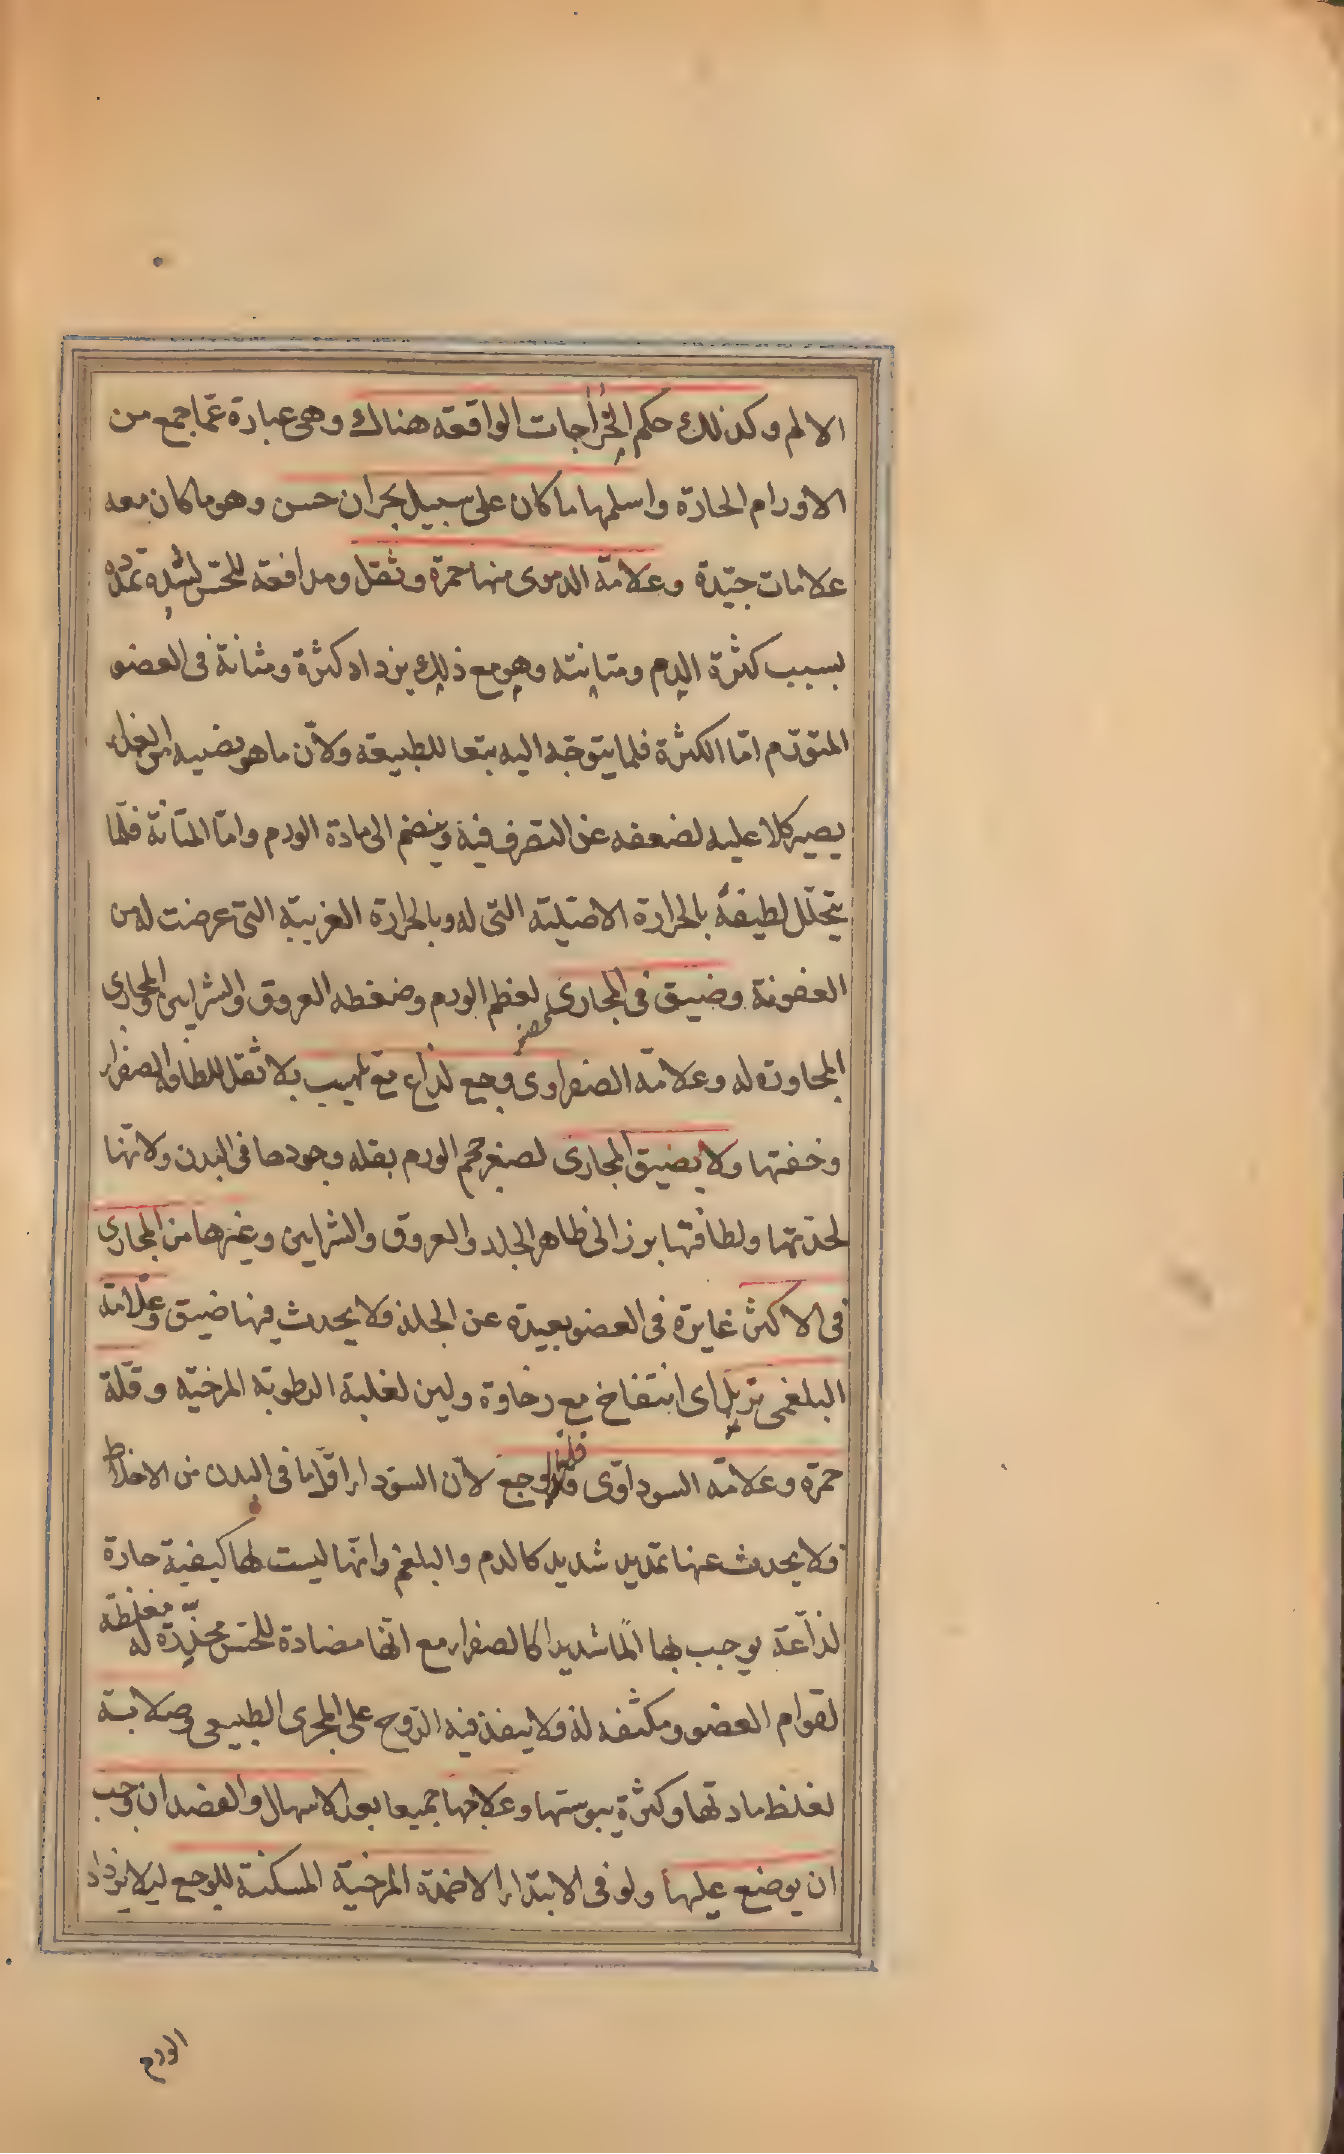 الالم وكذلك حكم الخُراجات الواقعة هناك وهى عبارة عمّا جمع من
الاورام الحارة واسلمها ما كان على سبيل بحران حسن وهو ما كان معه
علامات جيّدة وعلامة الدموى منها حمرة وثقل ومدافعة للحسّ لشدة تمدّده
بسبب كثرة الدم ومتانته وهو مع ذلك يزداد كثرة ومتانة فى العضو
المتورّم امّا الكثرة فلما يتوجّه اليه تبعا للطبيعة ولانّ ما هو نصيبه من الغذاء
يصير كلا عليه لضعفه عن التصرف فيه وينضم الى مادة الورم وامّا المتانة فلّما
يتحلّل لطيفهُ بالحرارة الاصليّة التى له وبالحرارة الغريبة التى عرضت له من
العفونة وضيق فى المجارى لعظم الورم وضغطه العروق والشرايين والمجارى
المجاورة له وعلامة الصفراوى وجع لذّاع مع لهيب بلا ثقل للطافة الصفراء
وخفتها ولا يضيق المجارى لصغر حجم الورم بقلة وجودها فى البدن ولانّها
لحدّتها ولطافتها برز الى ظاهر الجلد والعروق والشرايين وغيرها من المجارى
فى الاكثر غايرة فى العضو بعيدة عن الجلد فلا يحدث فيها ضيق وعلامة
البلغمى تربل اى انتفاخ مع رخاوة ولين لغلبة الرطوبة المرخيّة وقلّة
حمرة وعلامة السوداوى قلة وجع لانّ السوداء اقلّ ما فى البدن من الاخلاط
فلا يحدث عنها تمديد شديد كالدم والبلغم وانّها ليست لها كيفية حارة
لذّاعة يوجب بها المًا شديدا كالصفراء مع انّها مضادة للحسّ مخدّرة له مغلظة
لقوام العضو ومكثفه له فلا ينفذ فيه الروح على المجرى الطبيعى وصلابة
لغلظ مادتها وكثرة يبوستها وعلاجها جميعا بعد الاسهال والفصد ان وجب
ان يوضع عليها ولو فى الابتداء الاضمدة المرخية المسكنة للوجع ليلا يزداد
الورم